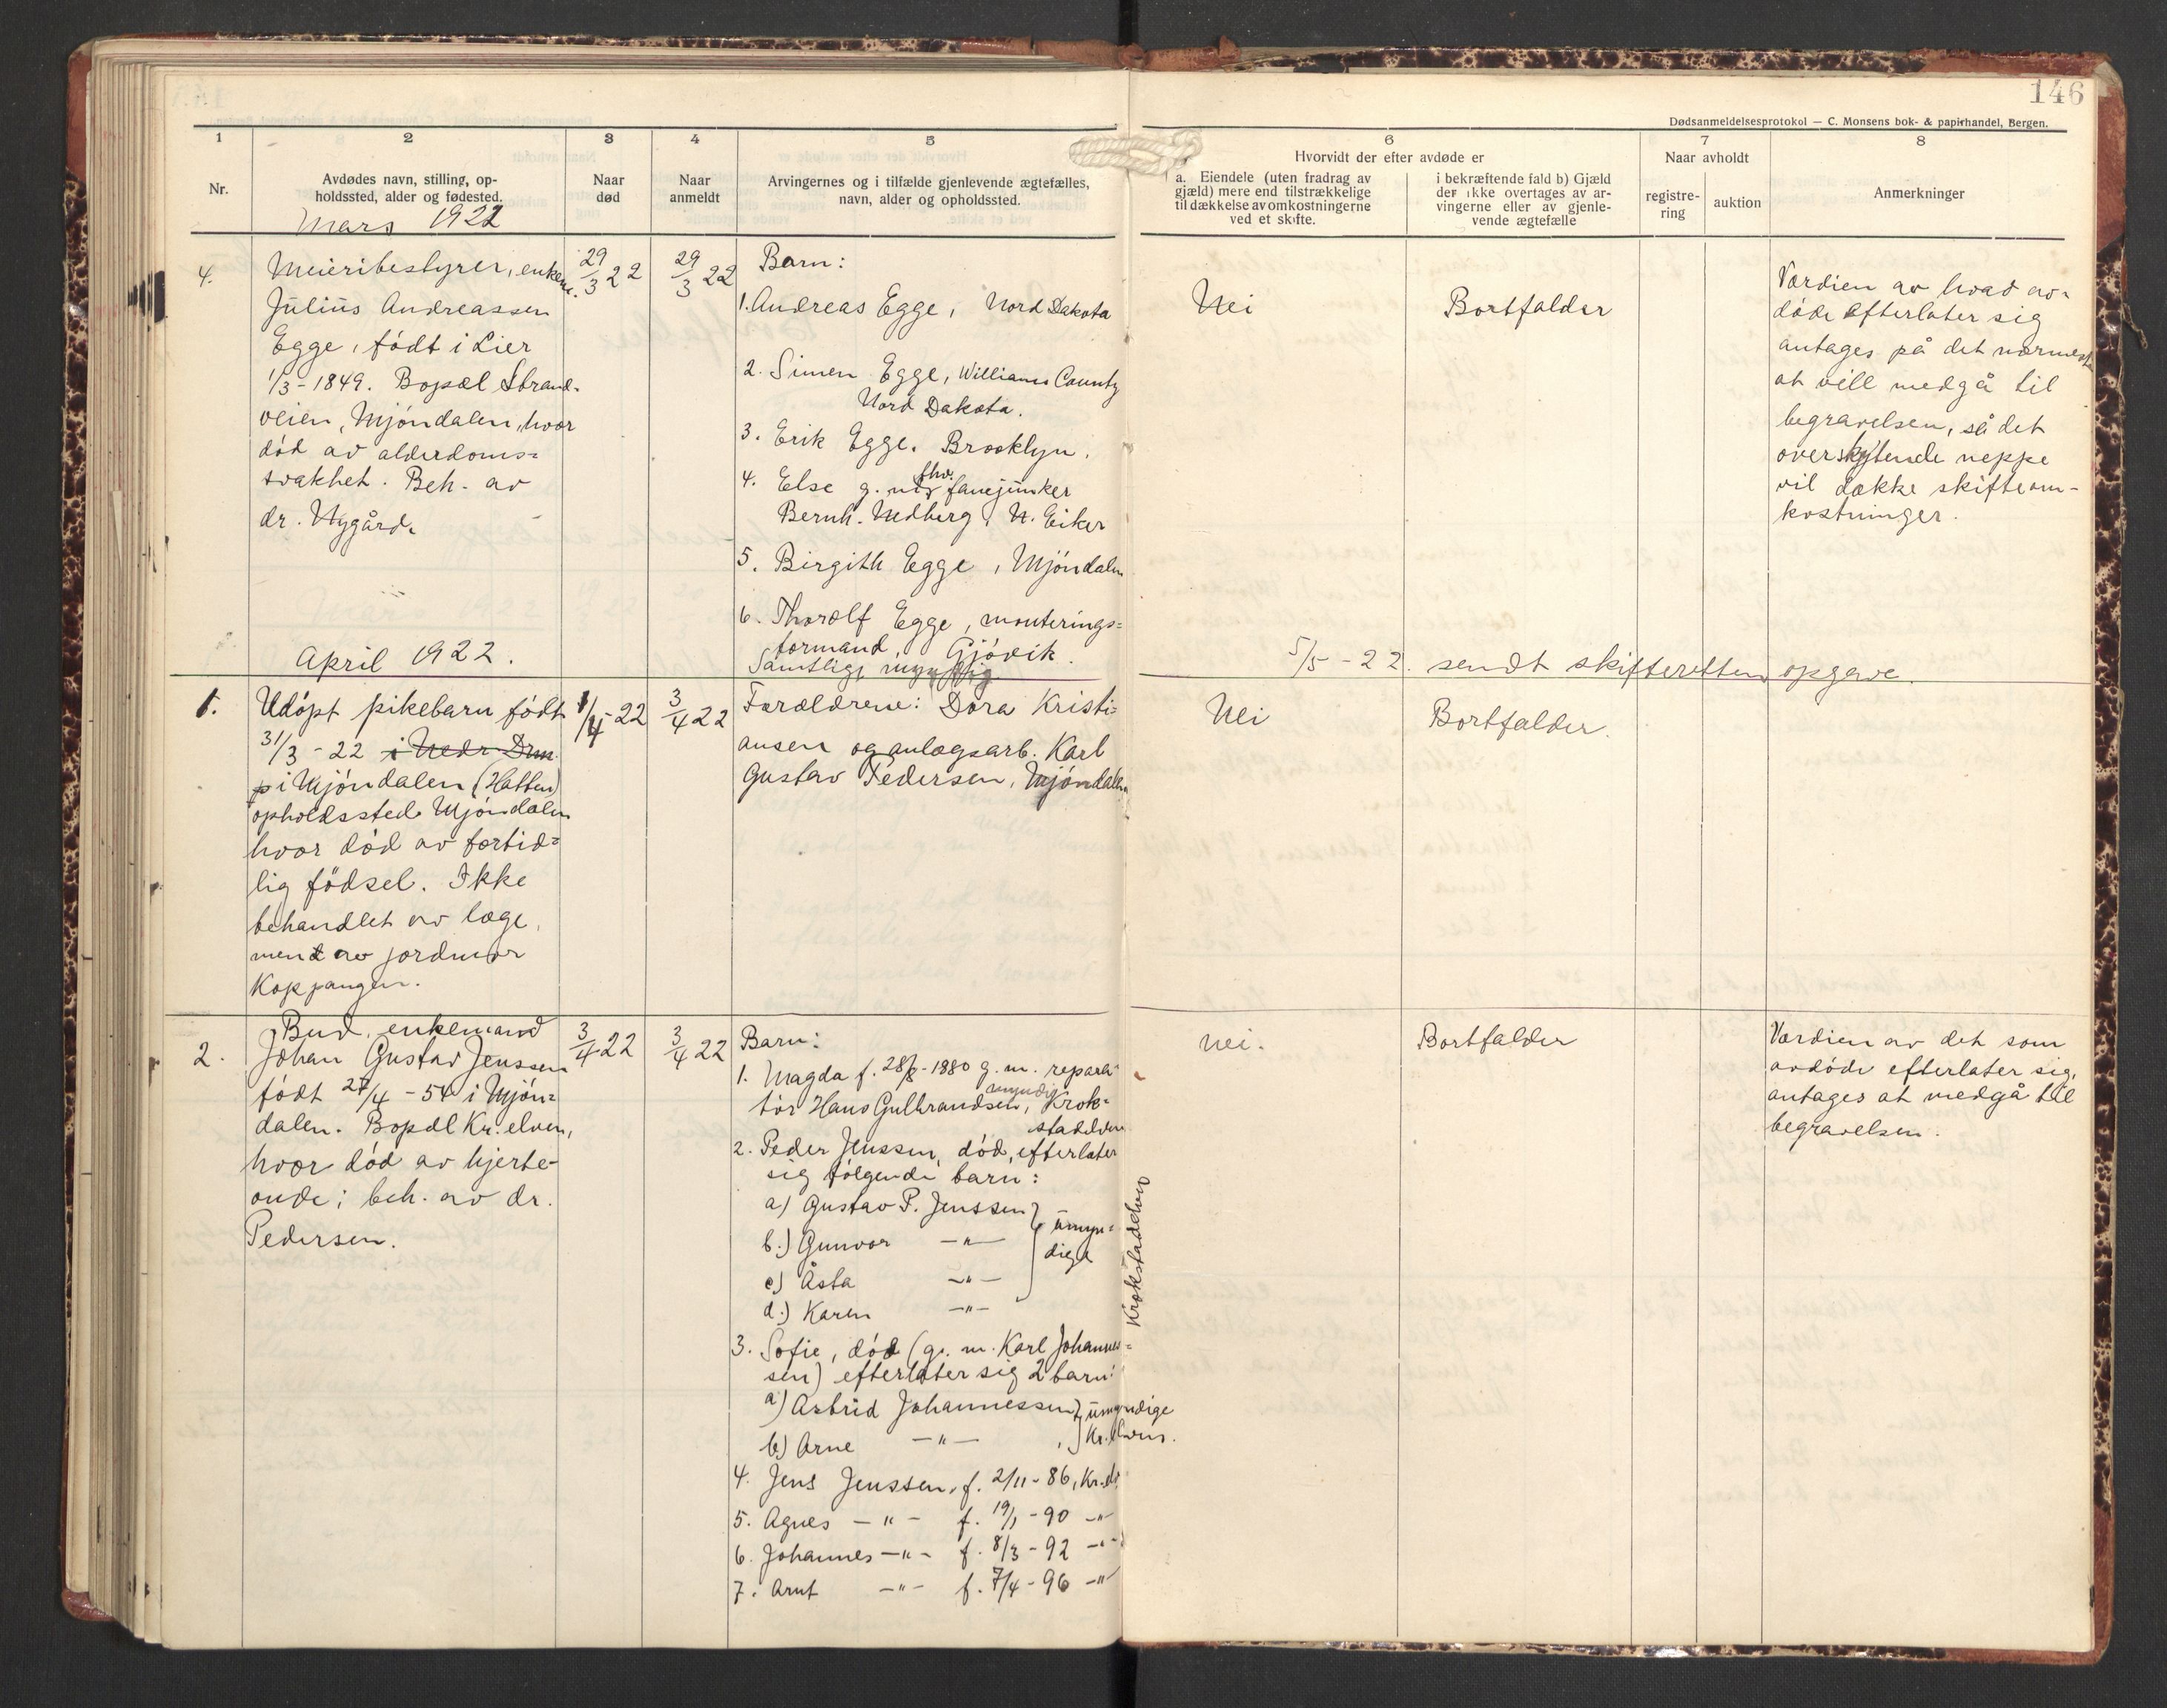 146
Dødsanmeldelsesprotokol — C. Monsens bok- & papirhandel, Bergen.
1
2
3
4
5
6
7
8
Nr.
Avdødes navn, stilling, op-
holdssted, alder og fødested.
Naar
død
Naar
anmeldt
Arvingernes og i tilfælde gjenlevende ægtefælles,
navn, alder og opholdssted.
Hvorvidt der efter avdøde er
a. Eiendele (uten fradrag av
gjæld) mere end tilstrækkelige
til dækkelse av omkostningerne
ved et skifte.
i bekræftende fald b) Gjæld
der ikke overtages av ar-
vingerne eller av gjenle-
vende ægtefælle
Naar avholdt
registre-
ring
auktion
Anmerkninger
Mars 1922
4.
Meieribestyrer, enkem.
Julius Andreassen
Egge, født i Lier
1/3-1849. Bopæl Strand-
veien, Mjøndalen, hvor
død av alderdoms-
svakhet. Beh. av
dr. Nygård.
29/3 22
29/3 22
Barn:
1. Andreas Egge, Nord Dakota
2. Simen Egge, Williams County
Nord Dakota.
3. Erik Egge. Brooklyn.
4. Else g. m. fhv. fanejunker
Bernh. Medberg, N. Eiker
5. Birgith Egge, Mjøndalen
6. Thorolf Egge, monterings-
formand, Gjøvik.
Samtlige myndig
Nei
Bortfalder
Værdien av hvad av-
døde efterlater sig
antages på det nærmeste
at vill medgå til
begravelsen, så det
overskytende neppe
vil dække skifteom-
kostninger.
5/5-22. sendt skifteretten opgave.
April 1922.
1.
Udøpt pikebarn født
31/3-22 i Nedr. Drm.
i Mjøndalen (Hatten)
opholdssted Mjøndalen
hvor død av fortid-
lig fødsel. Ikke
behandlet av læge,
men av jordmor
Koppangen.
1/4-22
3/4 22
Forældrene: Dora Kristi-
ansen og anlægsarb. Karl
Gustav Pedersen, Mjøndalen
Nei
Bortfalder.
2.
Bud, enkemand
Johan Gustav Jenssen
født 27/4-54 i Mjøn-
dalen. Bopæl Kr. elven,
hvor død av hjerte-
onde; beh. av dr.
Pedersen.
3/4-22
3/4 22
Barn:
1. Magda f. 28/8-1880 g. m. repara-
tør Hans Gulbrandsen, myndig, Krok-
stadelven
2. Peder Jenssen, død, efterlater
sig følgende barn:
a) Gustav P. Jenssen } umyn-
b.) Gunvor —"— dige
c) Åsta —"—
d.) Karen —"—
Krokstadelven
3. Sofie, død (g. m. Karl Johannes-
sen) efterlater sig 2 barn:
a) Astrid Johannessen } umyndige
b) Arne —"— , Kr. elven.
4. Jens Jenssen, f. 2/11-86, Kr. elv.
5. Agnes —"— f. 19/1-90 —"—
6. Johannes —"— f. 8/3-92 —"—
7. Arnt —"— f. 7/4-96 —"—
Nei.
Bortfalder
Værdien av det som
avdøde efterlater sig,
antages at medgå til
begravelsen.